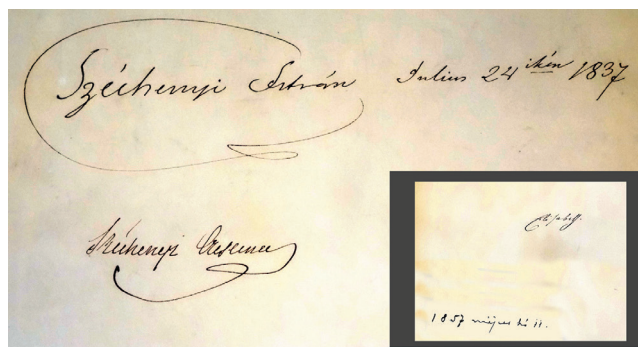 Széchenyi István Julius 24 ikén 1837
Széchenyi Crescence
Elisabeth.
1857 május hó 11.